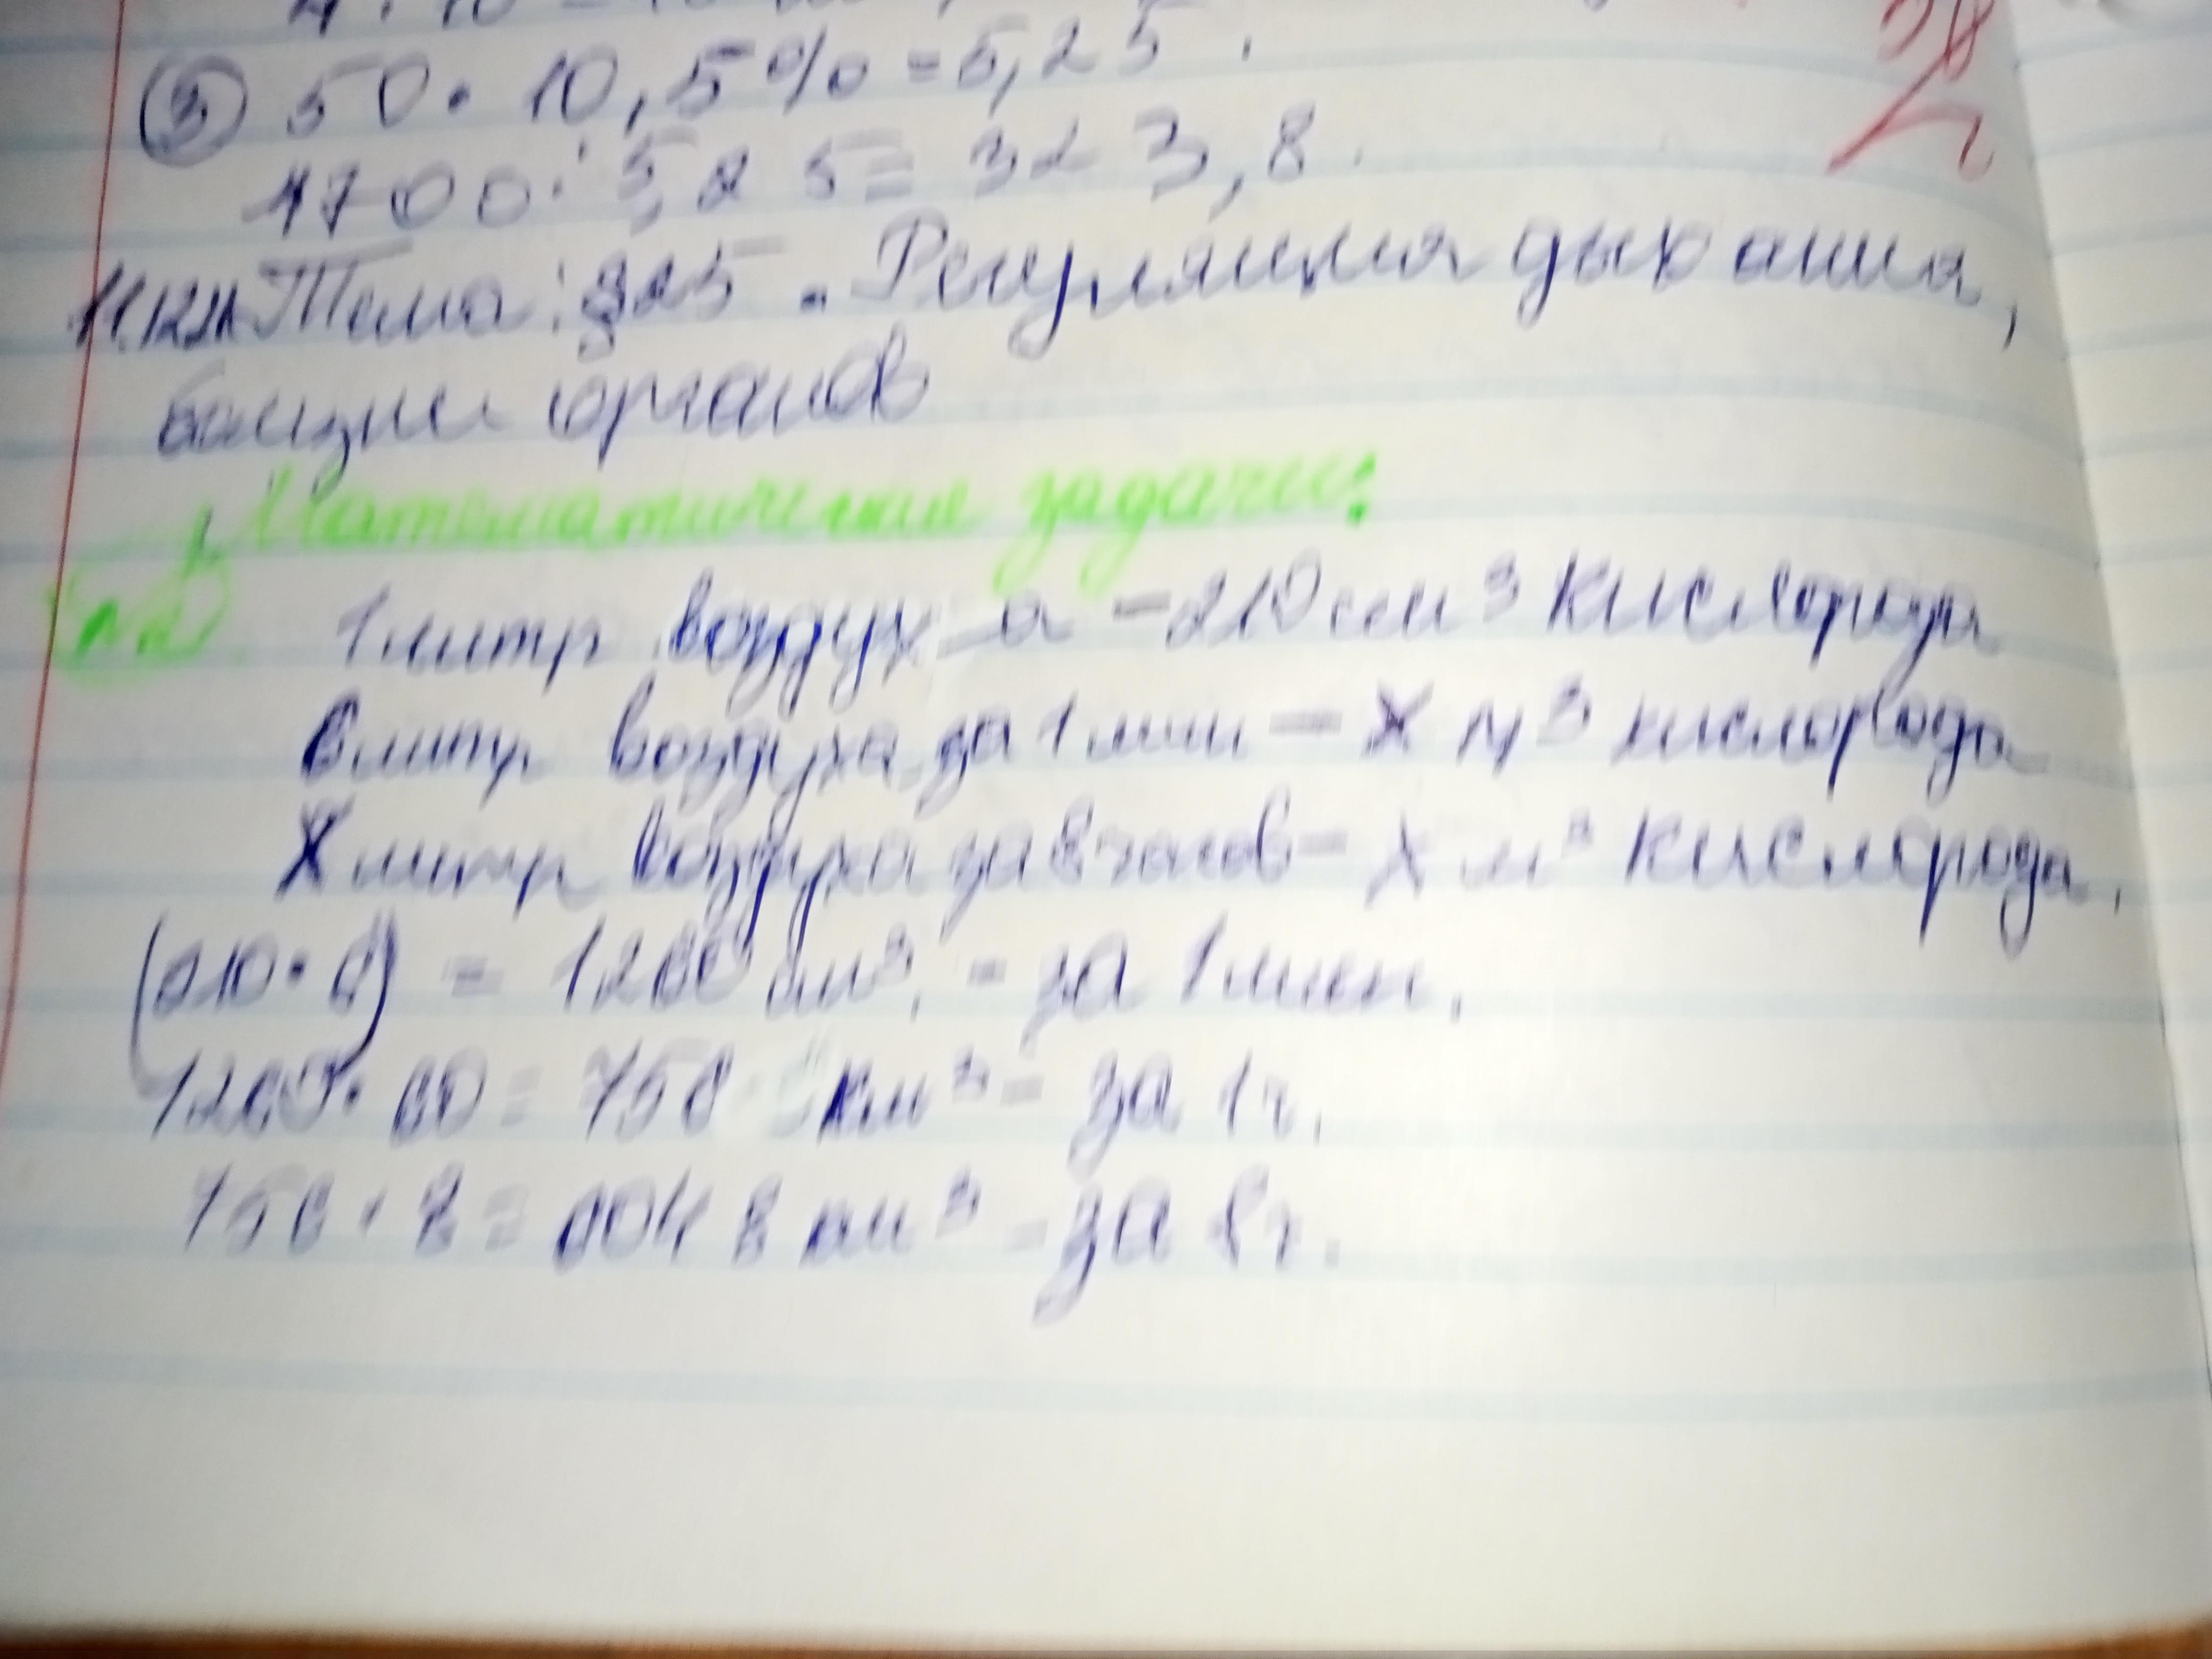 ③ 50 · 10,5% = 5,25.
1700 : 5,25 = 323,8.
Тема: §25. Регуляция дыхания,
болезни органов
Математические задачи:
№2. 1 литр воздуха - 210 см³ кислорода
6 литр воздуха за 1 мин - X м³ кислорода
X литр воздуха за 8 часов - X м³ кислорода.
(210 · 6) = 1260 см³. - за 1 мин.
1260 · 60 = 756 - за 1 ч.
756 · 8 = 6048 - за 8 ч.